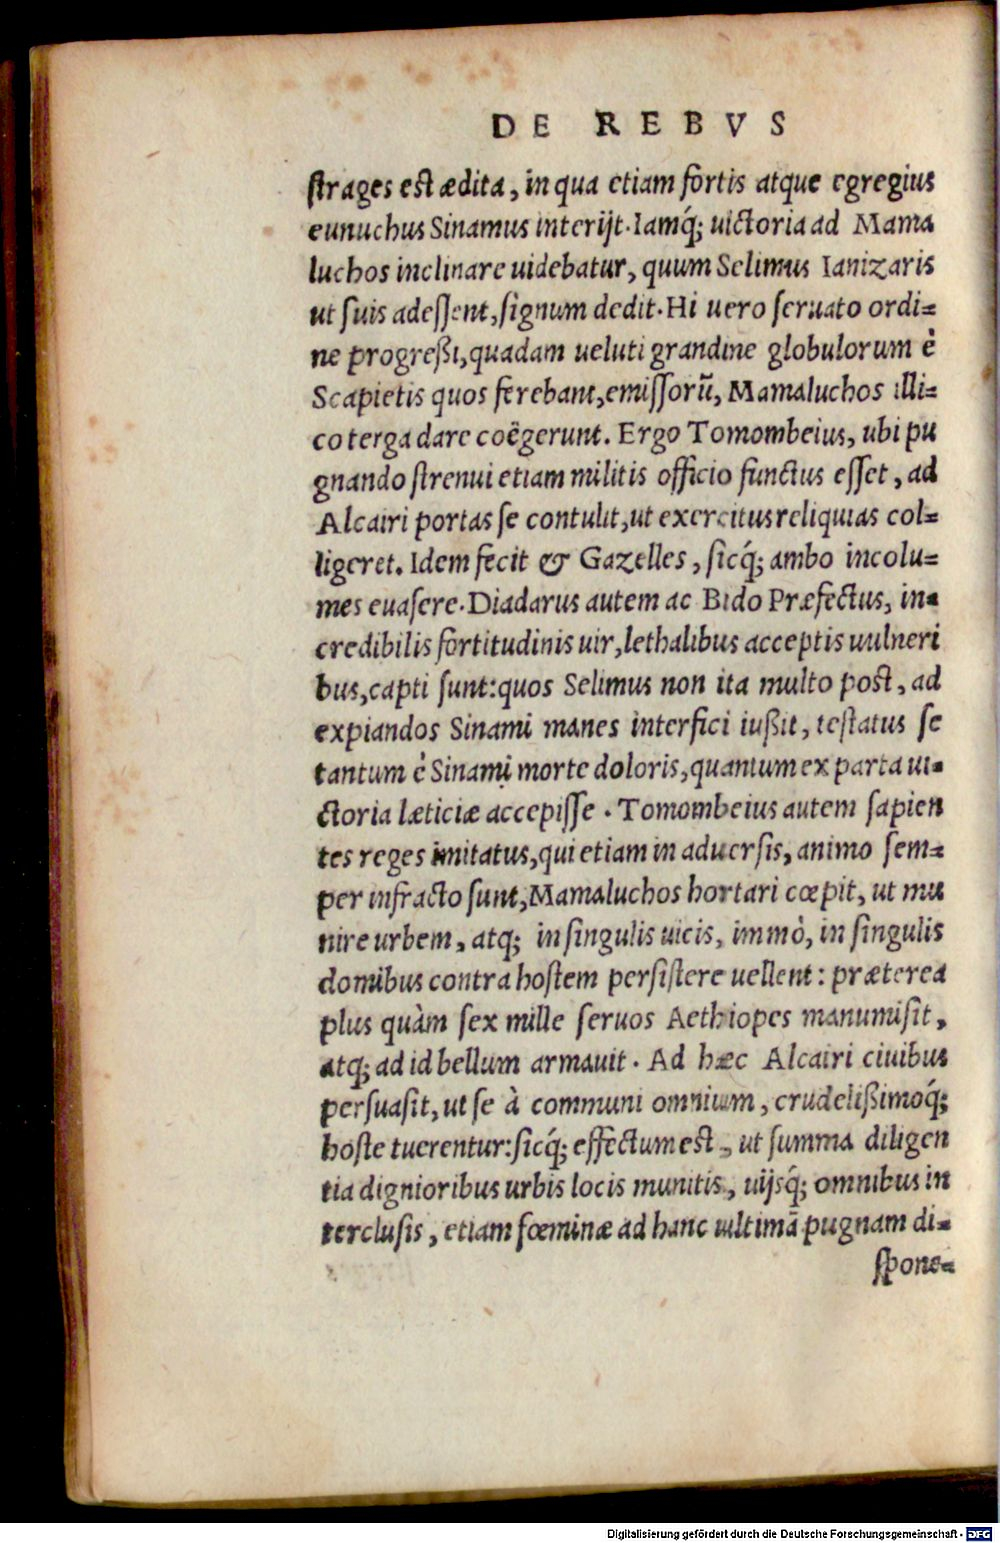 DE REBVS
ſtrages est ædita, in qua etiam fortis atque egregius
eunuchus Sinamus interijt. Iamq́; uictoria ad Mama
luchos inclinare uidebatur, quum Selimus Ianizaris
ut ſuis adeſſent, ſignum dedit. Hi uero ſeruato ordi=
ne progreßi, quadam ueluti grandine globulorum è
Scapietis quos ferebant, emiſſorũ, Mamaluchos illi=
co terga dare coëgerunt. Ergo Tomombeius, ubi pu
gnando ſtrenui etiam militis officio functus eſſet, ad
Alcairi portas ſe contulit, ut exercitus reliquias col=
ligeret. Idem fecit & Gazelles, ſicq́; ambo incolu=
mes euaſere. Diadarus autem ac Bido Præfectus, in=
credibilis fortitudinis uir, lethalibus acceptis uulneri
bus, capti ſunt: quos Selimus non ita multo post, ad
expiandos Sinami manes interfici iußit, teſtatus ſe
tantum è Sinami morte doloris, quantum ex parta ui=
ctoria læticiæ accepiſſe. Tomombeius autem ſapien
tes reges imitatus, qui etiam in aduerſis, animo ſem=
per infracto ſunt, Mamaluchos hortari cœpit, ut mu
nire urbem, atq; in ſingulis uicis, immò, in ſingulis
domibus contra hoſtem perſiſtere uellent: præterea
plus quàm ſex mille ſeruos Aethiopes manumiſit,
atq; ad id bellum armauit. Ad hæc Alcairi ciuibus
perſuaſit, ut ſe à communi omnium, crudelißimoq́;
hoſte tuerentur: ſicq́; effectum est, ut ſumma diligen
tia dignioribus urbis locis munitis, uijsq́; omnibus in
terclusis, etiam fœminæ ad hanc ultimã pugnam di=
ſpone=
Digitalisierung gefördert durch die Deutsche Forschungsgemeinschaft - DFG